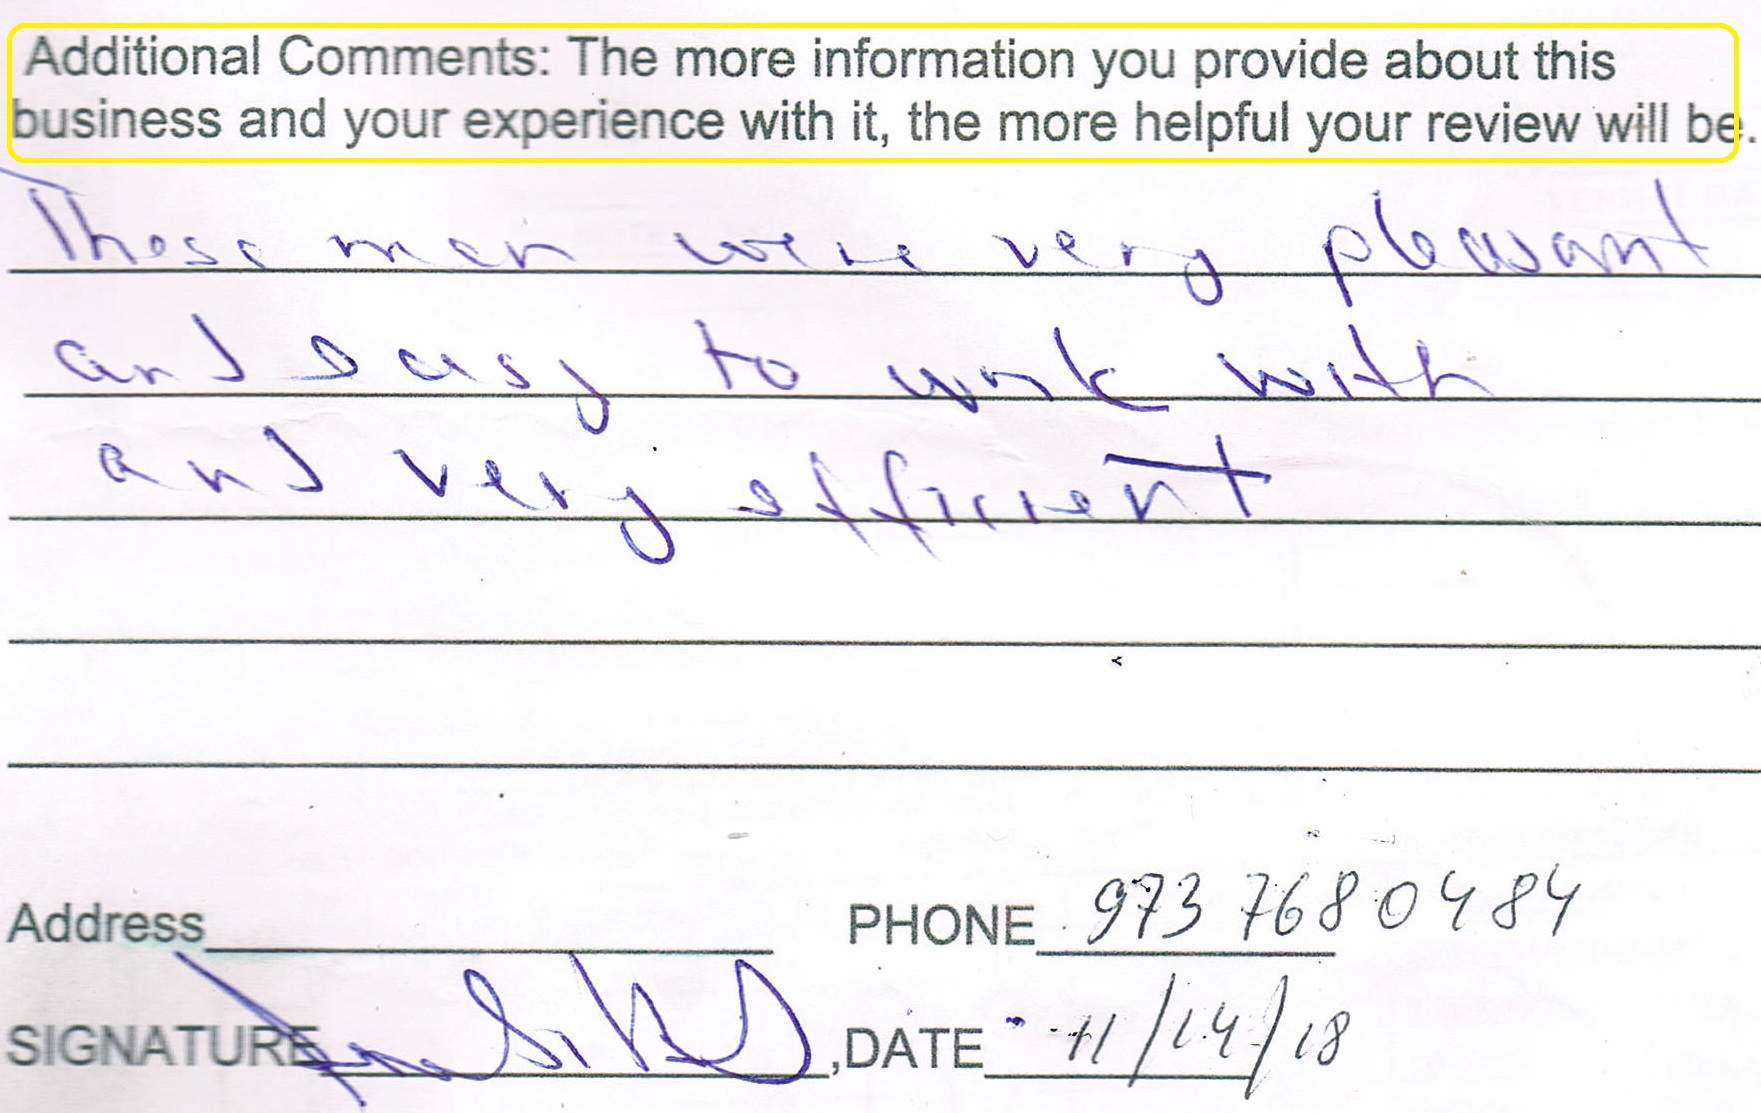 Additional Comments: The more information you provide about this
business and your experience with it, the more helpful your review will be.
These men were very pleasant
and easy to work with
and very efficient
Address PHONE 973 768 0484
SIGNATURE ,DATE 11/14/18